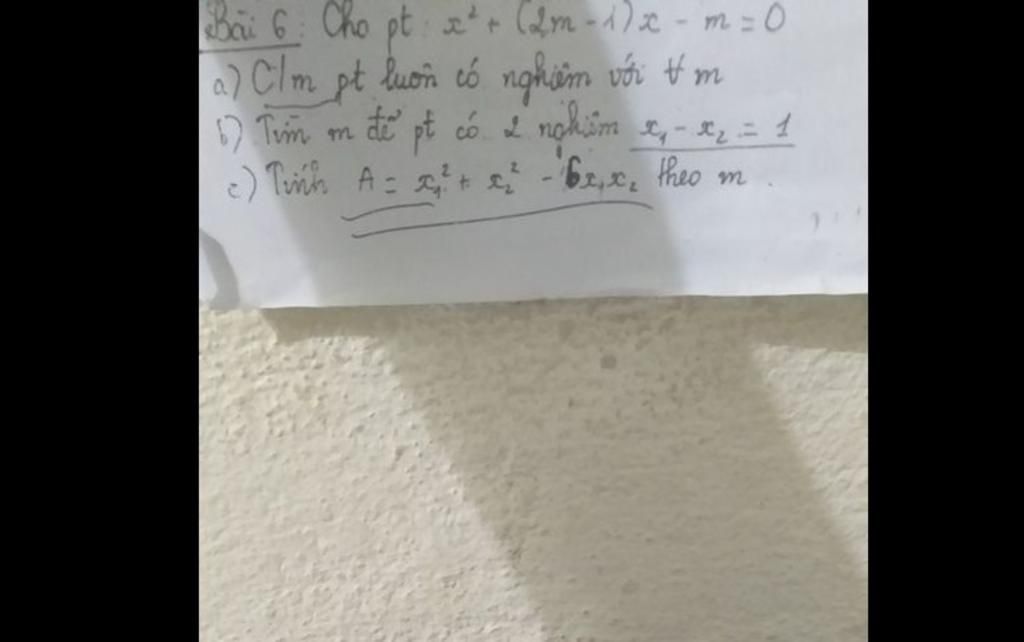 Bài 6: Cho pt: x² + (2m - 1)x - m = 0
a) C/m pt luôn có nghiệm với ∀ m
b) Tìm m để pt có 2 nghiệm x₁ - x₂ = 1
c) Tính A = x₁² + x₂² - 6x₁x₂ theo m.